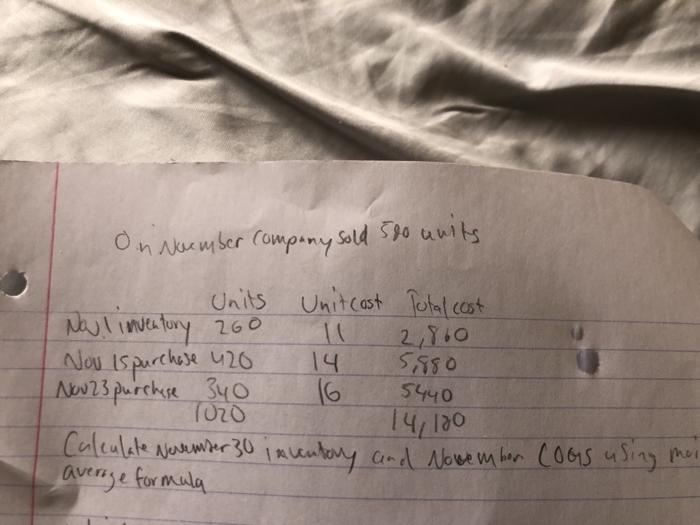 On November company sold 580 units
Units Unit cost Total cost
Nov 1 inventory 260 11 2,860
Nov 15 purchase 420 14 5,880
Nov 23 purchase 340 16 5440
1020 14,180
Calculate November 30 inventory and November COGS using
average formula